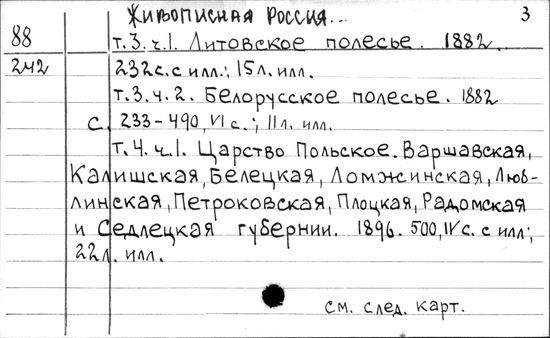 Живописная Россия...
3
88 т.3. ч.1. Литовское полесье. 1882.
242 232 с. с илл.; 15 л. илл.
т.3. ч. 2. Белорусское полесье. 1882
с. 233-490, VI с.; 11 л. илл.
т. 4. ч.1. Царство Польское. Варшавская,
Калишская, Белецкая, Ломжинская, Люб-
линская, Петроковская, Плоцкая, Радомская
и Седлецкая губернии. 1896. 500, IV с. с илл.;
22 л. илл.
см. след. карт.